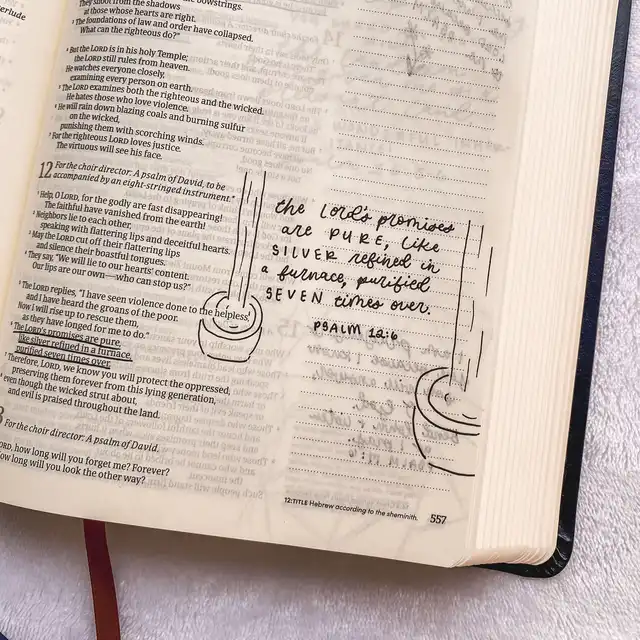 erlude
bowstrings.
They shoot from the shadows
at those whose hearts are right.
³ The foundations of law and order have collapsed.
What can the righteous do?"
⁴ But the LORD is in his holy Temple;
the LORD still rules from heaven.
He watches everyone closely,
examining every person on earth.
⁵ The LORD examines both the righteous and the wicked.
He hates those who love violence.
⁶ He will rain down blazing coals and burning sulfur
on the wicked,
punishing them with scorching winds.
⁷ For the righteous LORD loves justice.
The virtuous will see his face.
12 For the choir director: A psalm of David, to be
accompanied by an eight-stringed instrument.*
¹ Help, O LORD, for the godly are fast disappearing!
The faithful have vanished from the earth!
² Neighbors lie to each other,
speaking with flattering lips and deceitful hearts.
³ May the LORD cut off their flattering lips
and silence their boastful tongues.
⁴ They say, "We will lie to our hearts' content.
Our lips are our own—who can stop us?"
⁵ The LORD replies, "I have seen violence done to the helpless,
and I have heard the groans of the poor.
Now I will rise up to rescue them,
as they have longed for me to do."
⁶ The LORD's promises are pure,
like silver refined in a furnace,
purified seven times over.
⁷ Therefore, LORD, we know you will protect the oppressed,
preserving them forever from this lying generation,
⁸ even though the wicked strut about,
and evil is praised throughout the land.
3 For the choir director: A psalm of David.
ORD, how long will you forget me? Forever?
ow long will you look the other way?
the Lord's promises
are PURE, like
SILVER refined in
a furnace, purified
SEVEN times over.
PSALM 12:6
12:TITLE Hebrew according to the sheminith.
557